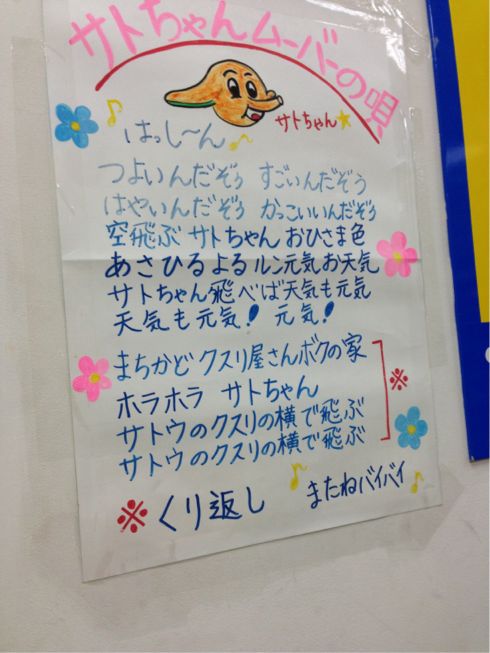 サトちゃんムーバーの唄
サトちゃん★
はっし〜ん
つよいんだぞぅ すごいんだぞぅ
はやいんだぞぅ かっこいいんだぞぅ
空飛ぶ サトちゃん おひさま色
あさひるよる ルン元気お天気
サトちゃん飛べば天気も元気
天気も元気! 元気!
まちかど クスリ屋さんボクの家
ホラホラ サトちゃん
サトウのクスリの横で飛ぶ
サトウのクスリの横で飛ぶ
※
※くり返し またねバイバイ